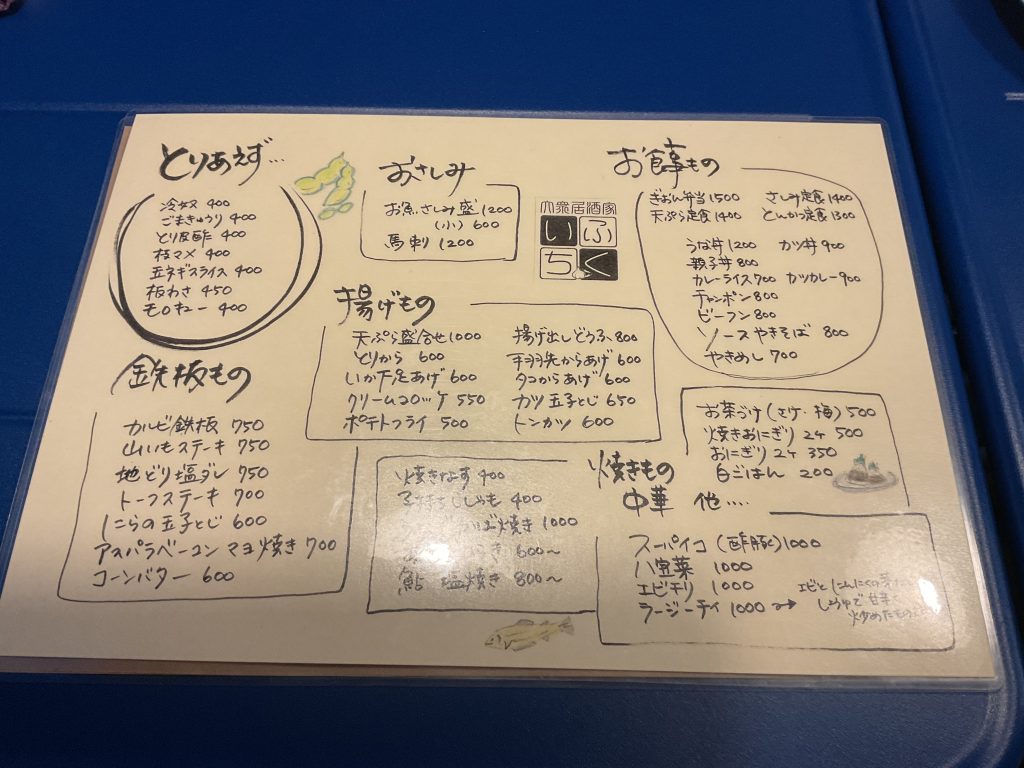 とりあえず…
冷奴 400
ごまきゅうり 400
とり皮酢 400
枝マメ 400
玉ネギスライス 400
板わさ 450
モロキュー 400
おさしみ
お魚さしみ盛 1200
(小) 600
馬刺 1200
大衆居酒家
いふ
ちく
お食事もの
ぎおん弁当 1500 さしみ定食 1400
天ぷら定食 1400 とんかつ定食 1300
うな丼 1200 カツ丼 900
親子丼 800
カレーライス 700 カツカレー 900
チャンポン 800
ビーフン 800
ソースやきそば 800
やきめし 700
揚げもの
天ぷら盛合せ 1000
とりから 600
いか下足あげ 600
クリームコロッケ 550
ポテトフライ 500
揚げ出しどうふ 800
手羽先からあげ 600
タコからあげ 600
カツ玉子とじ 650
トンカツ 600
鉄板もの
カルビ鉄板 750
山いもステーキ 750
地どり塩ダレ 750
トーフステーキ 700
にらの玉子とじ 600
アスパラベーコンマヨ焼き 700
コーンバター 600
お茶づけ (さけ・梅) 500
焼きおにぎり 2ケ 500
おにぎり 2ケ 350
白ごはん 200
焼きもの
焼きなす 400
子持ちししゃも 400
焼き 1000
600〜
鮎 塩焼き 800〜
中華 他….
スーパイコ (酢豚) 1000
八宝菜 1000
エビチリ 1000
ラージーテイ 1000 → エビとにんにくの芽
しょうゆで甘辛く
炒めたもの